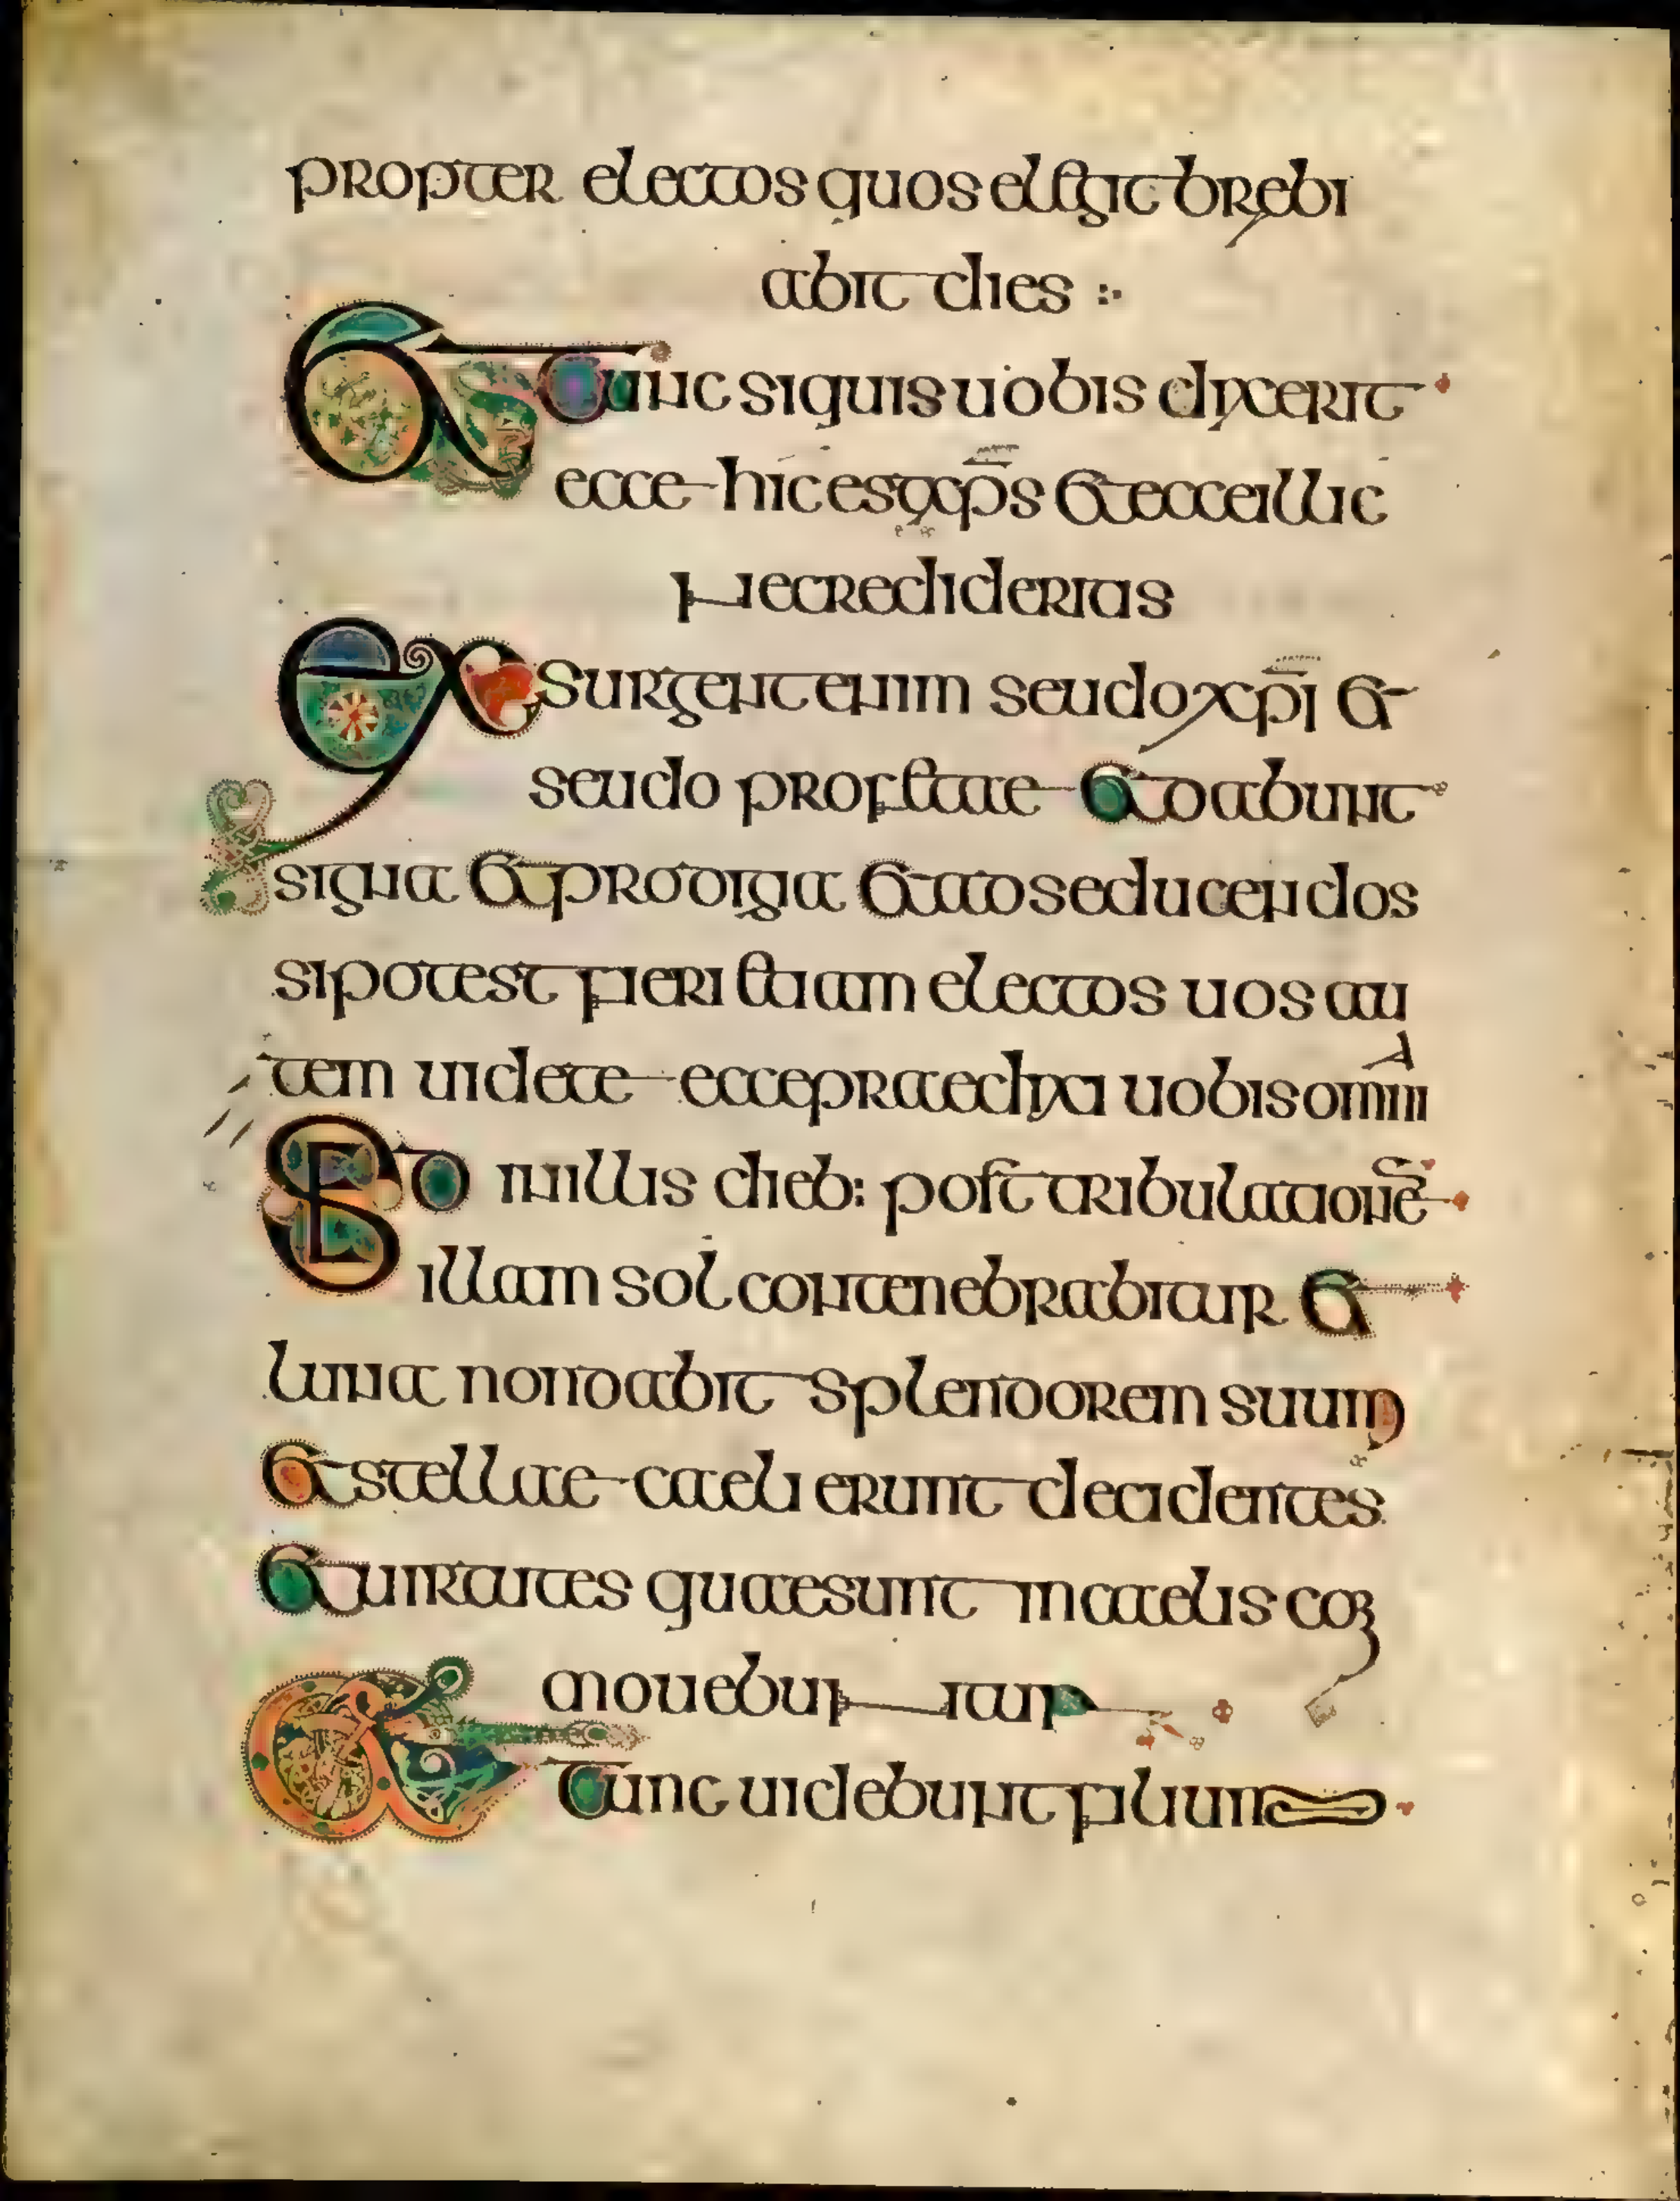 propter electos quos elegit brebi
abit dies :·
Et tunc siquis uobis dixerit
ecce hic est xp̄s et ecce illic
ne credideritis
Exsurgent enim seudo xp̄i et
seudo profetae et dabunt
signa et prodigia et ad seducendos
si potest fieri etiam electos uos au
tem uidete ecce praedixi uobis omnia
Sed in illis dieb: post tribulationē
illam sol contenebrabitur et
luna non dabit splendorem suum
et stellae caeli erunt decidentes
et uirtutes quae sunt in caelis com
mouebuntur
Et tunc uidebunt filium